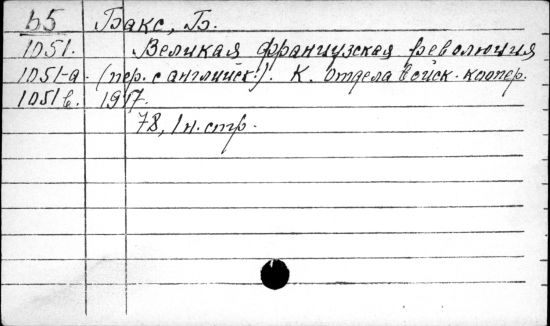 Б5 Бакс, Б.
1051. Великая французская революция
1051-а. (пер. с английск.). К. Отдела войск. коопер.
1051 в. 1917.
78, 1 н. стр.